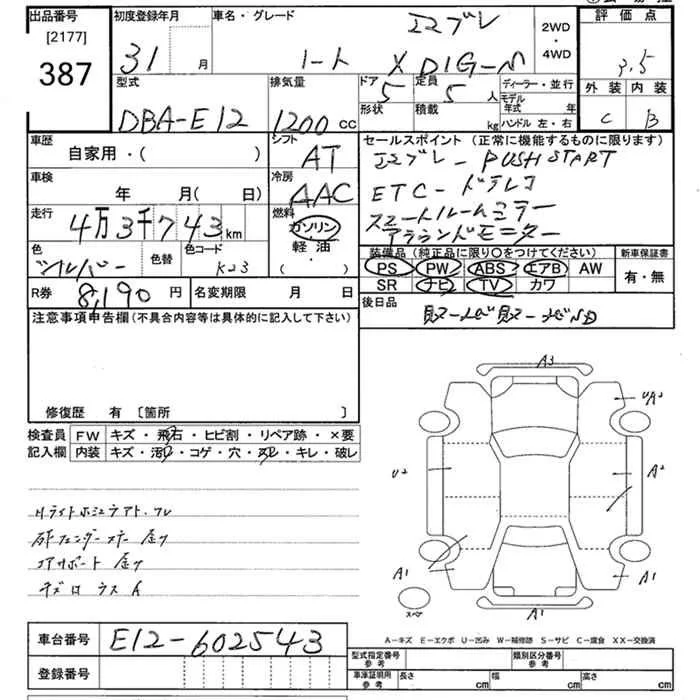 出品番号
[2177]
387
初度登録年月
31 月
車名・グレード
エコブレ
ノート X DIG-S
2WD
・
4WD
評価点
3.5
外装 内装
C B
型式
DBA-E12
排気量
1200 cc
ドア
5
定員
5 人
形状
積載
kg
ディーラー・並行
モデル
年式 年
ハンドル 左・右
車歴
自家用・( )
シフト
AT
車検
年 月( 日)
冷房
AAC
走行
4万3千743 km
燃料
ガソリン
軽・油
・( )
色
シルバー
色替
色コード
K23
R券
8,190 円
名変期限 月 日
セールスポイント (正常に機能するものに限ります)
エコブレ - PUSH START
ETC-ドラレコ
スマートルームミラー
アラウンドモニター
装備品 (純正品に限り○をつけてください)
PS PW ABS エアB AW
SR ナビ TV カワ
新車保証書
有・無
後日品
取-ナビ取-ナビSD
注意事項申告欄 (不具合内容等は具体的に記入して下さい)
修復歴 有 〔箇所 〕
検査員
記入欄
FW キズ・飛石・ヒビ割・リペア跡・×要
内装 キズ・汚れ・コゲ・穴・スレ・キレ・破レ
A3
UA2
U2
A2
A1
A1
スペア
A1
A-キズ E-エクボ U-凹み W-補修跡 S-サビ C-腐食 XX-交換済
車台番号
E12-602543
登録番号
型式指定番号
参考
類別区分番号
参考
車庫証明用
参考
長さ cm
幅 cm
高さ cm